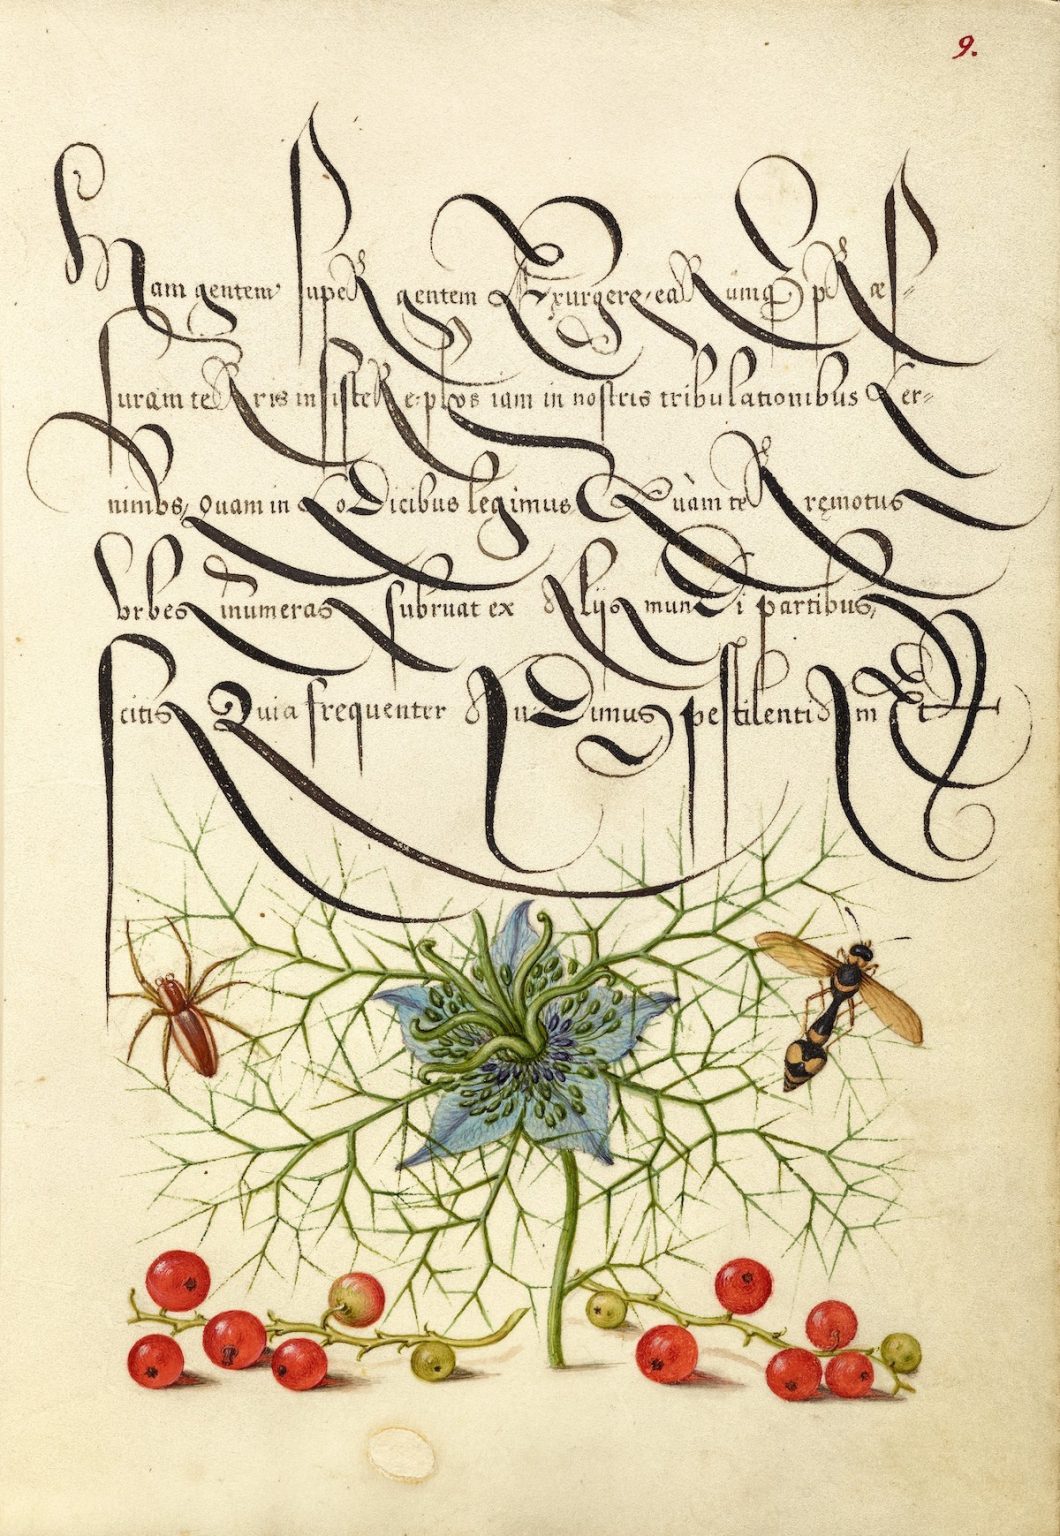 9.
Nam gentem' supeR gentem Exurgere, eaRumq3 pRæs=
suram teRris insisteRe, plvs iam in nostris tribulationibus Cer=
nimvs, Quam in CoDicibus legimus Quàm teRręmotus
Vrbes inumeras subruat ex Alijs munDi partibus,
scitis Quia frequenter AuDimus pestilentiAm Et